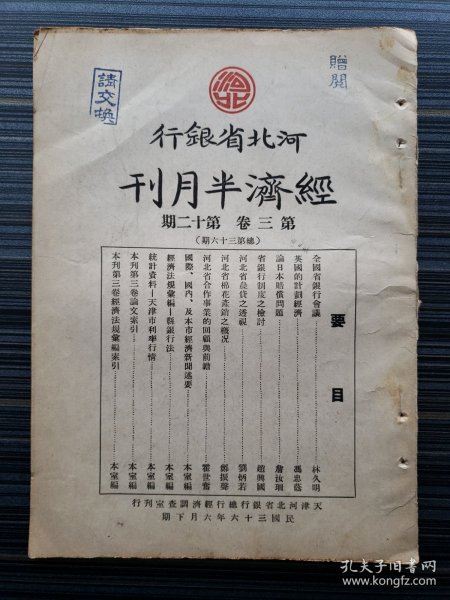 贈閱
請交換
河北省銀行
經濟半月刊
第三卷 第十二期
（總第三十六期）
要目
全國省銀行會議 林久明
英國的計劃經濟 馮忠蔭
論日本賠償問題 詹汝珊
省銀行制度之檢討 趙興國
河北省農貸之透視 劉炳若
河北省棉花產銷之概况 鄭振聲
河北省合作事業的回顧與前瞻 霍世奮
國際、國內、及本市經濟新聞述要 本室編
經濟法規彙編－縣銀行法 本室編
統計資料－天津市利率行情 本室編
本刊第三卷論文索引 本室編
本刊第三卷經濟法規彙編索引 本室編
天津河北省銀行總行經濟調查室刊行
民國三十六年六月下期
孔夫子旧书网
www.kongfz.com